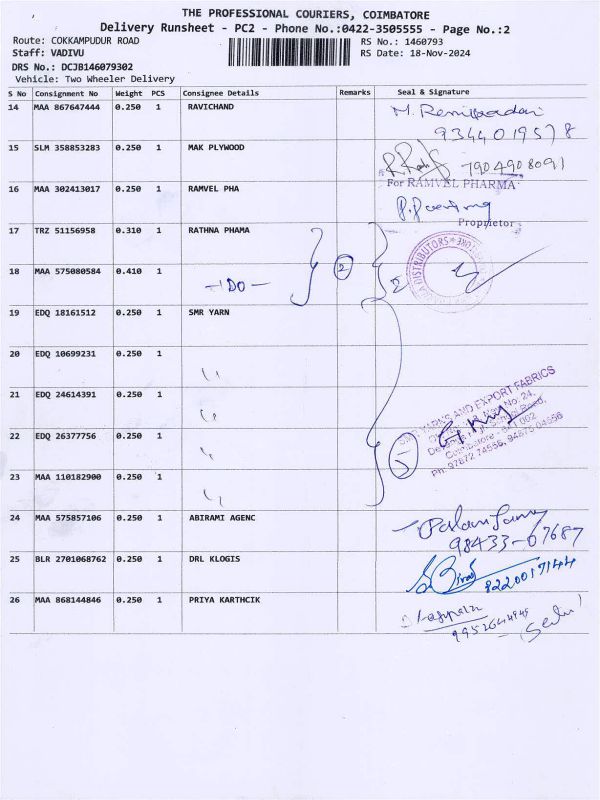 THE PROFESSIONAL COURIERS, COIMBATORE
Delivery Runsheet - PC2 - Phone No.:0422-3505555 - Page No.:2
Route: COKKAMPUDUR ROAD
RS No.: 1460793
Staff: VADIVU
RS Date: 18-Nov-2024
DRS No.: DCJB146079302
Vehicle: Two Wheeler Delivery
S No Consignment No Weight PCS Consignee Details Remarks Seal & Signature
14 MAA 867647444 0.250 1 RAVICHAND
9344019578
15 SLM 358853283 0.250 1 MAK PLYWOOD
7904908091
16 MAA 302413017 0.250 1 RAMVEL PHA
For RAMVEL PHARMA
Proprietor
17 TRZ 51156958 0.310 1 RATHNA PHAMA
2 2
18 MAA 575080584 0.410 1 -DO-
DISTRIBUTORS
19 EDQ 18161512 0.250 1 SMR YARN
20 EDQ 10699231 0.250 1 〃
21 EDQ 24614391 0.250 1 〃
22 EDQ 26377756 0.250 1 〃
23 MAA 110182900 0.250 1 〃
5
YARN'S AND EXPORT FABRICS
No: 24,
School Road,
Coimbatore - 641 002
Ph: 97872 74556, 94875 04556
24 MAA 575857106 0.250 1 ABIRAMI AGENC
98433-67687
25 BLR 2701068762 0.250 1 DRL KLOGIS
8220017144
26 MAA 868144846 0.250 1 PRIYA KARTHCIK
9952644949